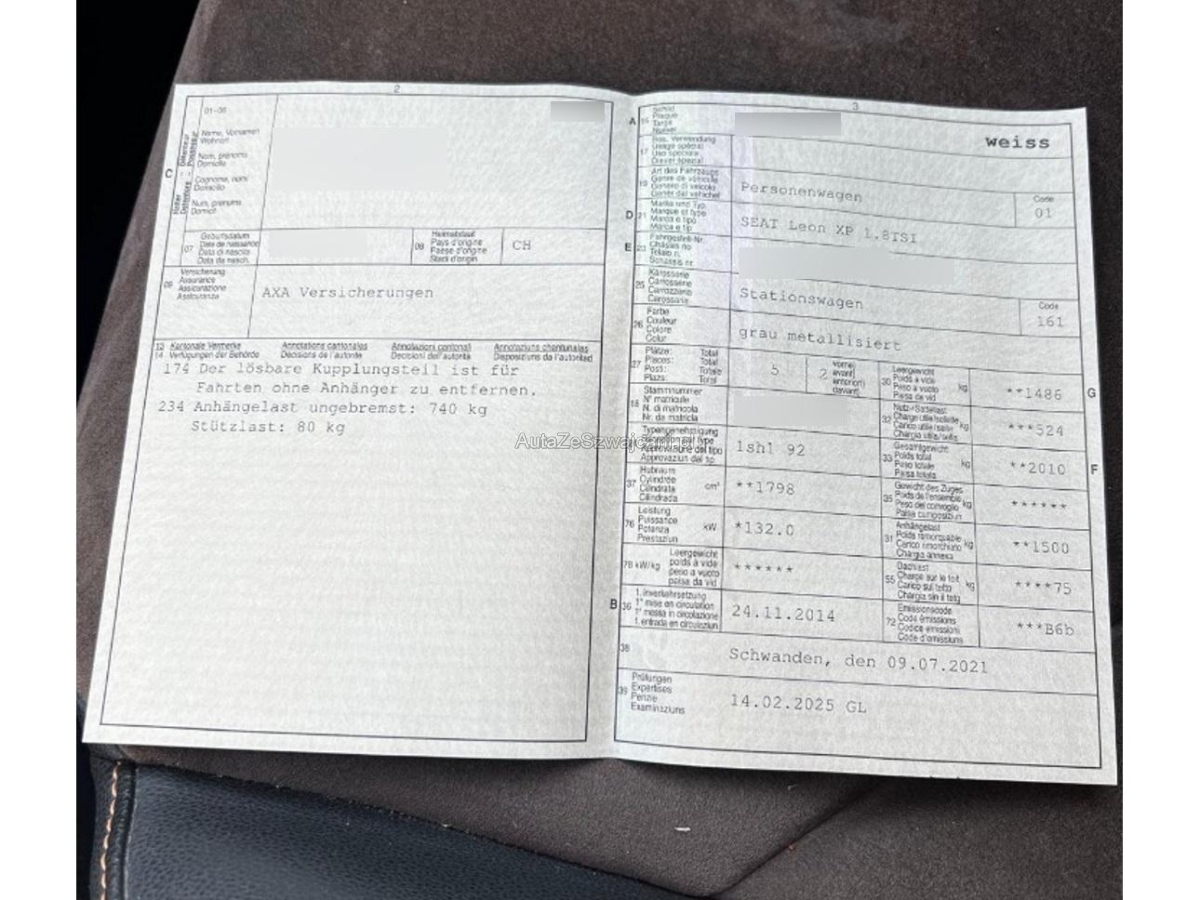 2
01-06
C
Halter - Détenteur
Detentore - Possessur
Name, Vornamen
Wohnort
Nom, prénoms
Domicile
Cognome, nomi
Domicilio
Num, prenoms
Domicil
07
Geburtsdatum
Date de naissance
Data di nascita
Data da nasch.
08
Heimatstaat
Pays d'origine
Paese d'origine
Stadi d'origin
CH
09
Versicherung
Assurance
Assicurazione
Assicuranza
AXA Versicherungen
13 Kantonale Vermerke Annotations cantonales Annotazioni cantonali Annotaziuns chantunalas
14 Verfügungen der Behörde Décisions de l'autorité Decisioni dell'autorità Disposiziuns da l'autoritad
174 Der lösbare Kupplungsteil ist für
Fahrten ohne Anhänger zu entfernen.
234 Anhängelast ungebremst: 740 kg
Stützlast: 80 kg
AutaZeSzwajcarii.pl
3
A 15
Schild
Plaque
Targa
Numer
weiss
17
Bes. Verwendung
Usage spécial
Uso speciale
Diever spezial
19
Art des Fahrzeugs
Genre de véhicule
Genere di veicolo
Gener dal vehichel
Personenwagen
Code
01
D 21
Marke und Typ
Marque et type
Marca e tipo
Marca e tip
SEAT Leon XP 1.8TSI
E 23
Fahrgestell-Nr.
Châssis no
Telaio n.
Schassis nr.
25
Karosserie
Carrosserie
Carrozzeria
Carossaria
Stationswagen
Code
161
26
Farbe
Couleur
Colore
Colur
grau metallisiert
27
Plätze: Total
Places: Total
Posti: Totale
Plazs: Total
5
2
vorne
avant
anteriori
davant
30
Leergewicht
Poids à vide
Peso a vuoto
Paisa da vid
kg
**1486
G
18
Stammnummer
N° matricule
N. di matricola
Nr. da matricla
32
Nutz-/Sattellast
Charge utile/sellette
Carico utile/sella
Chargia utila/sella
kg
***524
Typengenehmigung
Approvazione del tipo
Approvaziun dal tip
1sh1 92
33
Gesamtgewicht
Poids total
Peso totale
Paisa totala
kg
**2010
F
37
Hubraum
Cylindrée
Cilindrata
Cilindrada
cm³
**1798
35
Gewicht des Zuges
Poids de l'ensemble
Peso del convoglio
Paisa cumposiziun
kg
******
76
Leistung
Puissance
Potenza
Prestaziun
kW
*132.0
31
Anhängelast
Poids remorquable
Carico rimorchiato
Chargia annexa
kg
**1500
78 kW/kg
Leergewicht
poids à vide
peso a vuoto
paisa da vid
******
55
Dachlast
Charge sur le toit
Carico sul tetto
Chargia sin il tetg
kg
****75
B 36
1. Inverkehrsetzung
1re mise en circulation
1a messa in circolazione
1. entrada en circulaziun
24.11.2014
72
Emissionscode
Code émissions
Codice emissioni
Code d'emissiuns
***B6b
38
Schwanden, den 09.07.2021
39
Prüfungen
Expertises
Perizie
Examinaziuns
14.02.2025 GL